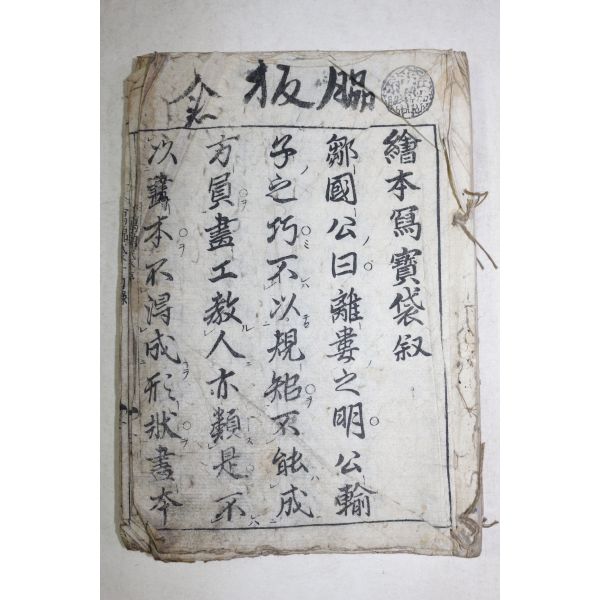 繪本寫寶袋叙
鄒國公曰離婁之明公輸
子之巧不以規矩不能成
方員畫工教人亦類是不
以畫本不得成形狀畫本